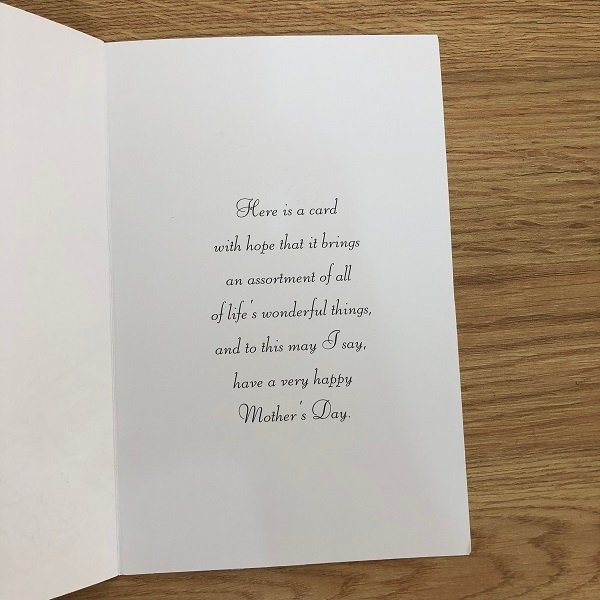 Here is a card
with hope that it brings
an assortment of all
of life's wonderful things,
and to this may I say,
have a very happy
Mother's Day.